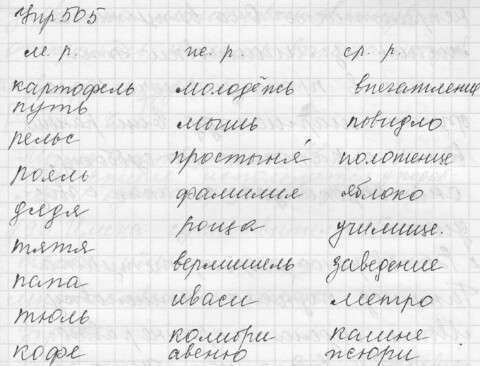 Упр 505
м. р. ж. р. ср. р.
картофель молодёжь впечатление
путь мышь повидло
рельс простыня́ положение
рояль фамилия яблоко
дядя роща училище.
тятя вермишель заведение
папа иваси метро
тюль колибри
кофе авеню жюри